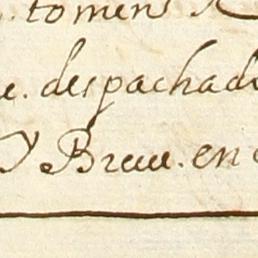 . tomens
e. despachad
Y Breue. en